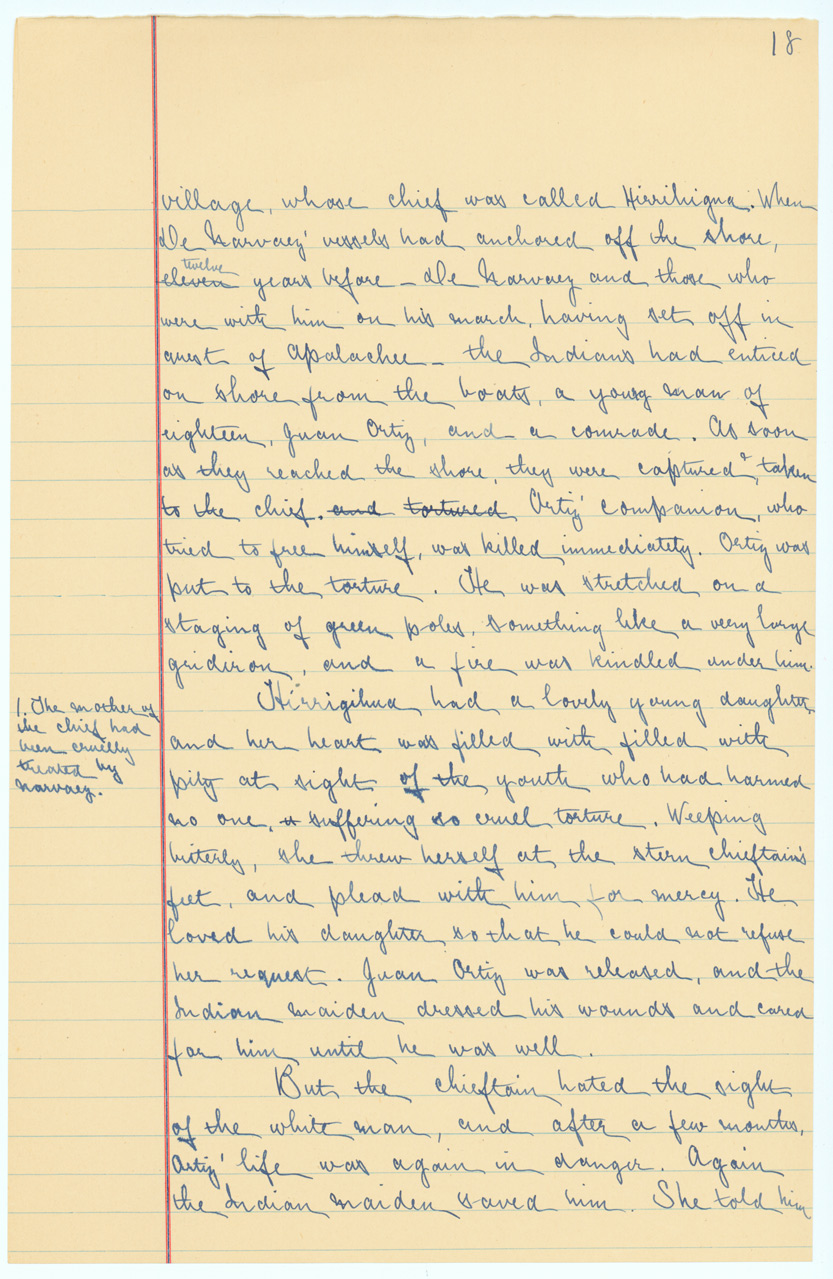 18
village, whose chief was called Hirrihigua. When
De Narvaez' vessels had anchored off the shore,
twelve
eleven years before – De Narvaez and those who
were with him on his march, having set off in
quest of Apalachee – the Indians had enticed
on shore from the boats, a young man of
eighteen, Juan Ortiz, and a comrade. As soon
as they reached the shore, they were captured & taken
to the chief. and tortured Ortiz' companion, who
tried to free himself, was killed immediately. Ortiz was
put to the torture. He was stretched on a
staging of green poles, something like a very large
gridiron, and a fire was kindled under him.
Hirrigihua had a lovely young daughter,
1. The mother of
the chief had
been cruelly
treated by
Narvaez.
and her heart was filled with filled with
pity at sight of the youth who had harmed
no one, suffering so cruel torture. Weeping
bitterly, she threw herself at the stern chieftain's
feet, and plead with him for mercy. He
loved his daughter so that he could not refuse
her request. Juan Ortiz was released, and the
Indian maiden dressed his wounds and cared
for him until he was well.
But the chieftain hated the sight
of the white man, and after a few months,
Ortiz' life was again in danger. Again
the Indian maiden saved him. She told him